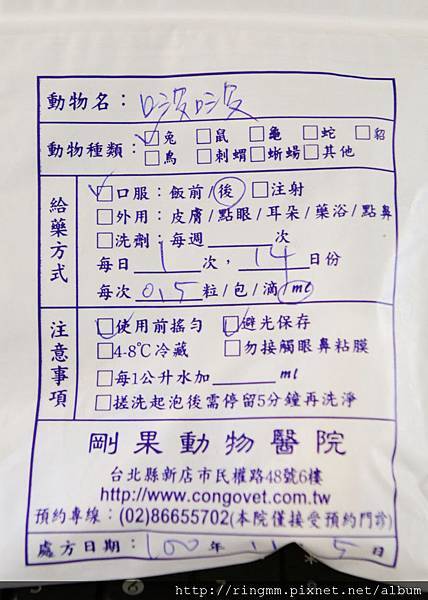 動物名：啵啵
動物種類：☑兔 □鼠 □龜 □蛇 □貂
□鳥 □刺蝟 □蜥蜴 □其他
給藥方式
☑口服：飯前/後 □注射
□外用：皮膚/點眼/耳朵/藥浴/點鼻
□洗劑：每週______次
每日 1 次，14 日份
每次 0.5 粒/包/滴/ml
注意事項
☑使用前搖勻 ☑避光保存
□4-8℃冷藏 □勿接觸眼鼻粘膜
□每1公升水加______ml
□搓洗起泡後需停留5分鐘再洗淨
剛果動物醫院
台北縣新店市民權路48號6樓
http://www.congovet.com.tw
預約專線：(02)86655702(本院僅接受預約門診)
處方日期：100年 11 月 5 日
http://ringmm.pixnet.net/album